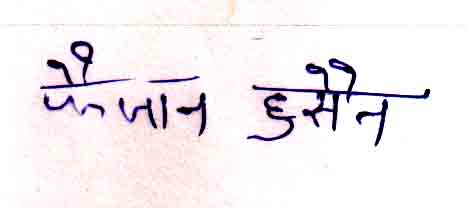 फैजान हुसैन